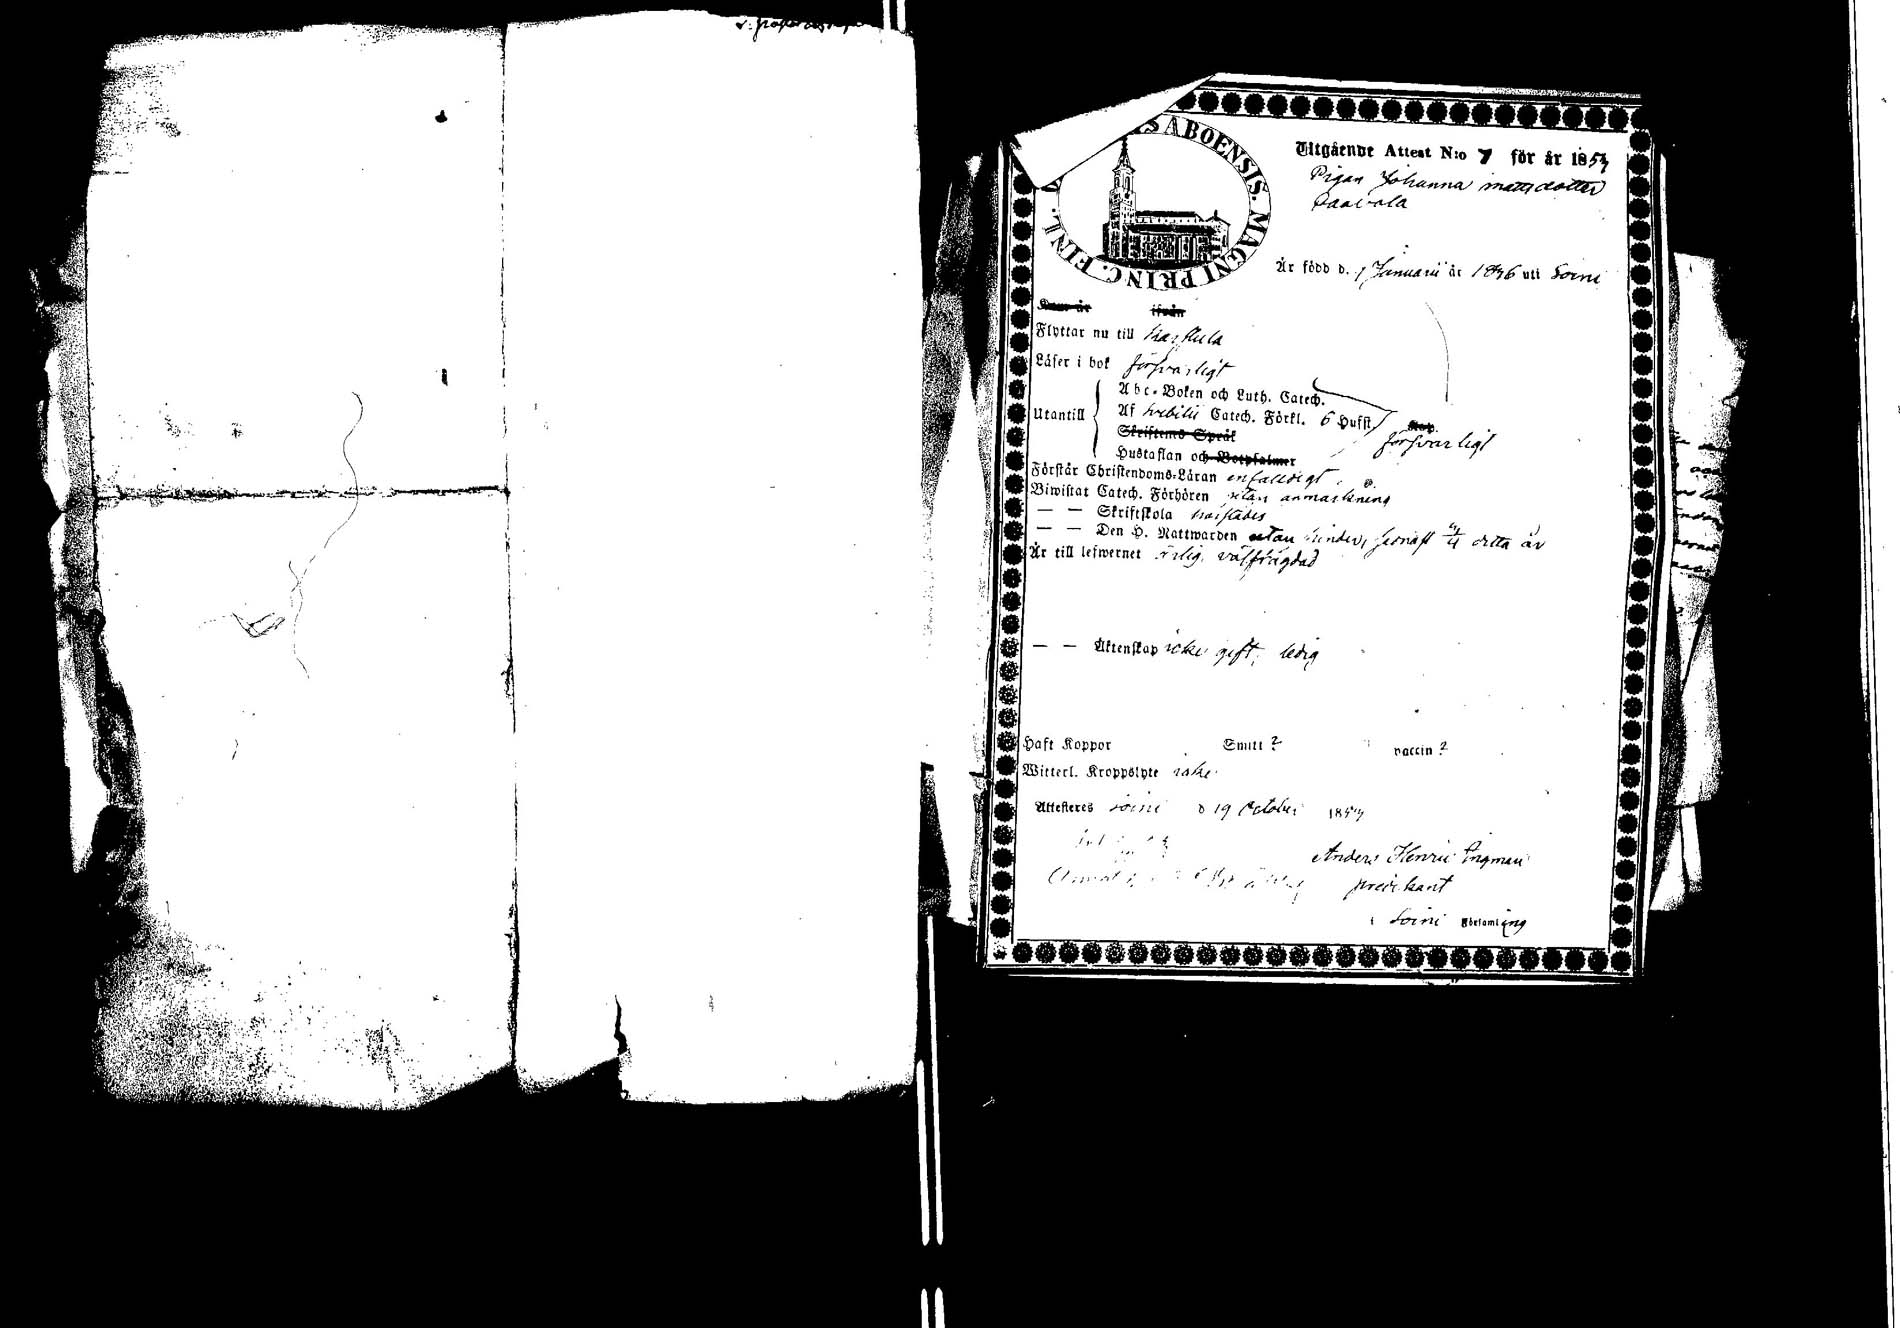 S ABOENSIS. MAGNI PRINC. FINL.
Utgående Attest N:o 7 för år 185
Pigan Johanna Mattsdotter
Paavola
Är född d. 1 Januarii år 1836 uti Soini
ifrån
Flyttar nu till Karstula
Läser i bok försvarligt
Abc-Boken och Luth. Catech.
Utantill Af Svebilii Catech. Förkl. 6 Hufst.
försvarligt
Skriftems Språk
Hustaflan och Botpsalmer
Förstår Christendoms-Läran enfaldigt
Biwistat Catech. Förhören utan anmärkning
— — Skriftskola
— — Den H. Nattwarden utan hinder, senast detta år
Är till lefwernet ärlig, välfrägdad
— — Äktenskap icke gift, ledig
Haft Koppor Smitt ? vaccin ?
Witterl. Kroppslyte icke
Attesteres Soini d 19 October 185
Anders Henric Ingman
predikant
i Soini Församling